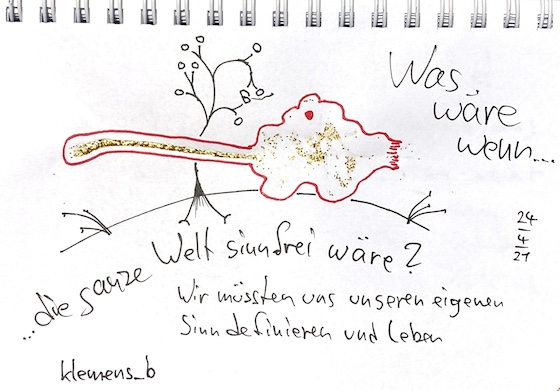 Was
wäre
wenn...
24
4
21
...die ganze Welt sinnfrei wäre?
Wir müssten uns unseren eigenen
Sinn definieren und leben
klemens_b